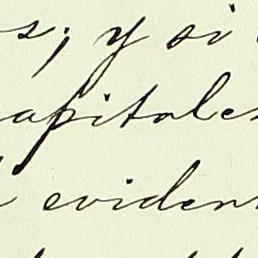 s; y si
apitales
eviden